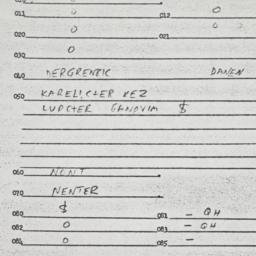 011 0 012 0
020 0 021 0
030 0
040 DERGRENTIC DANEN
050 KARELICTER VEZ
LUPCTER GANOVIA $
060 NONT
070 NENTER
080 $ 081 - QH
082 0 083 - GH
084 0 085 -